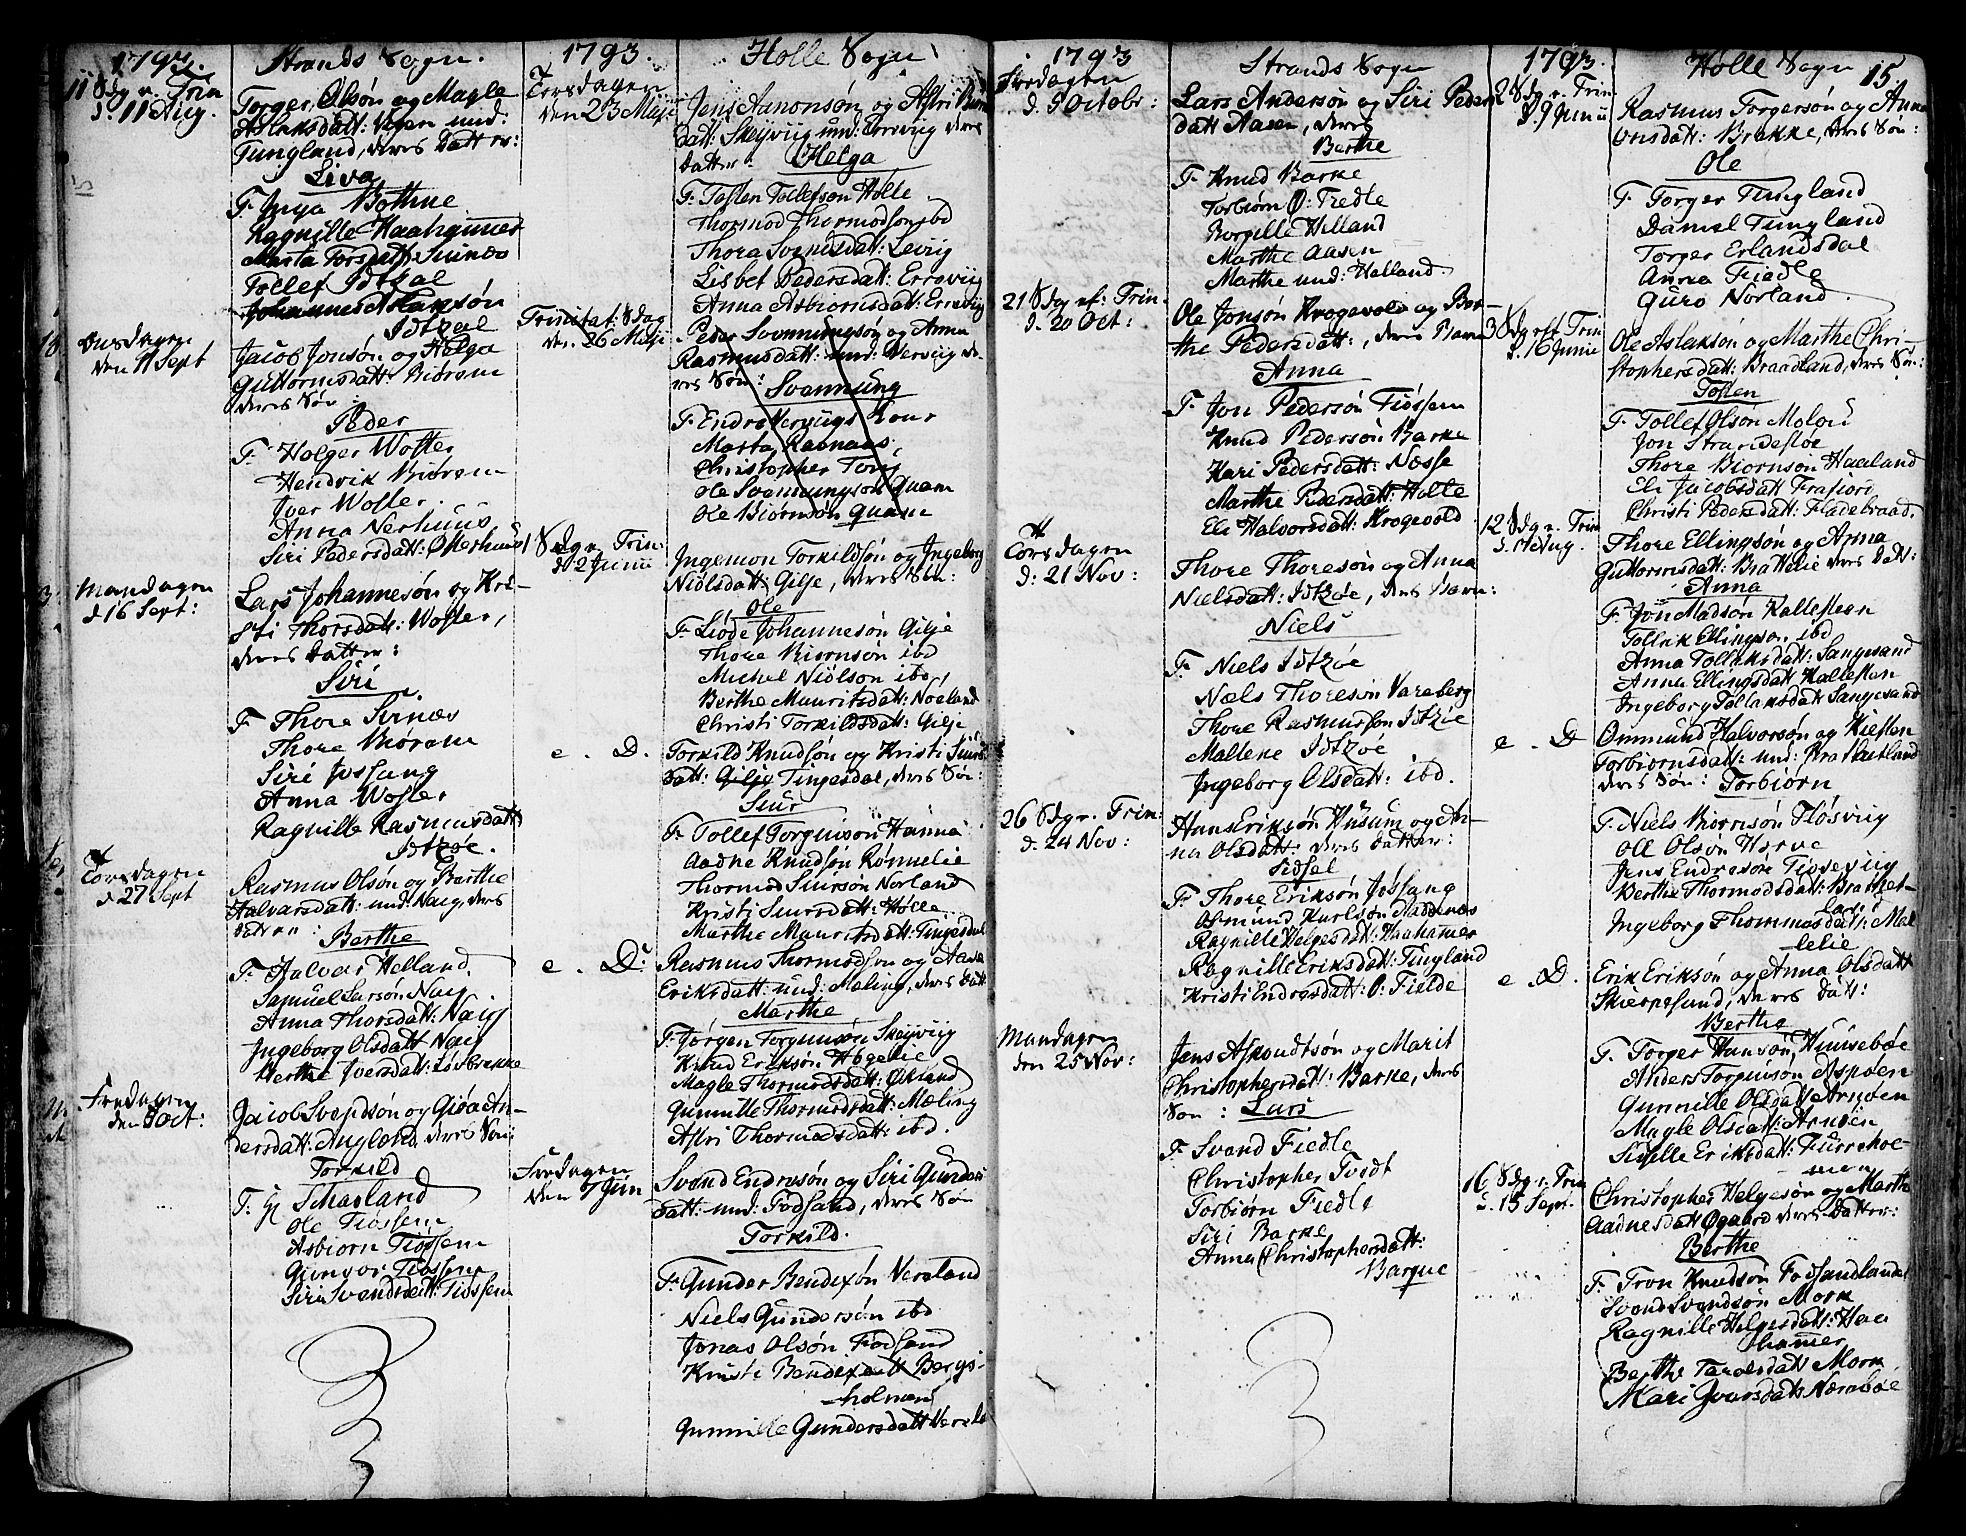 1793.
Strands Sogn.
11 Sdg e. Trin
d. 11 Aug.
Torger Olsön og Magle
Aslaksdatt: Vigen und:
Tungland, deres Datter:
Liva
F. Inga Bothne
Ragnille Haahammer
Marta Torsdatt:
Tollef Idtzal
Johannes Aslaksön
Idtzal
Onsdagen
den 11 Sept
Jacob Jonsön og Helga
Guttormsdatt: Biörem
deres Sön:
Peder
F. Holger Woster
Hendrik Biörem
Iver Woster.
Anna Nerhuus
Siri Pedersdatt: Osterhuus
Mandagen
d 16 Sept:
Lars Johannesön og Kri-
sti Thorsdatt: Woster,
deres Datter:
Siri
F. Thore Sirnæs
Thore Biörem
Siri Jossang
Anna Woster
Ragnille Rasmusdatt
Idtzöe.
Torsdagen
d 27 Sept
Rasmus Olsön og Berthe
Halvarsdatt: und: Naig, deres
Datter:
Berthe
F. Halvar Helland.
Samuel Larsön Naig
Anna Thorsdatt: Naig
Ingeborg Olsdatt Naig
Berthe Iversdatt: Lösbrekke
Fredagen
den Oct:
Jacob Svendsön og Giöa An-
dersdatt: Augland deres Sön:
Torkild
F. Schaaland
Ole Tiössem
Asbiorn Tiossem
Gunvor Tiossem
Siri Svendsdatt: Tiössem
1793.
Holle Sogn
Torsdagen
den 23 Maji
Jens Aanonsön og Astri
datt: Skeiviig und: Erreviig deres
Datter: Helga
F. Tosten Tollefson Holle
Thormod Thormodson ibd
Thora Svensdatt: Levig
Lisbet Pedersdatt: Erreviig
Anna Asbiornsdatt: Erreviig
Trinitat: Sdag
den 26 Maji
Peder Svennungson og Anna
Rasmusdatt: und: Verviig de-
res Sön: Svennung
F. Endre
Marta
Christopher Tou
Ole Svennungson Quam
Ole Biörnsön Quam
1 Sdg e. Trin:
d. 2 Junii
Ingemon Torkildsön og Ingeborg
Niölsdatt: Gilje, deres Sön:
Ole
F. Liöde Johannesön Gilje
Thore Biornsön ibd
Michel Niölson ibd
Berthe Mauritsdatt: Nöeland
Christi Torkildsdatt: Gilje
e. D.
Torkild Knudsön og Kristi Siurs
datt: Gilje Tingesdal, deres Sön:
Siur
F. Tollef Torgiuson Hanna
Aadne Knudsön Rönnelie
Thormod Siursön Norland
Kristi Siursdatt: Holle
Marthe Mauritsdatt: Tingesdal
e. D:
Rasmus Thormodson og Aasa
Eriksdatt: und: Mæling, deres Datt
Marthe
F. Jörgen Torgiusön Skeiviig
Knud Eriksön Högelie
Magle Thormodsdatt: Ökland
Gunnille Thormodsdatt: Mæling
Astri Thormodsdatt: ibd.
Fredagen
den 7 Jun
Svend Endresön og Siri Gunders
datt: und: Fodsand, deres Sön
Torkild.
F. Gunder Bendixön Vereland
Niels Gundersön ibd
Jonas Olsön Fodsand
Kristi Bendixdatt Bergs-
holmen
Gunnille Gundersdatt Verela
1793
Strands Sogn
Fredagen
d. Octobr:
Lars Andersön og Siri Peders
datt Aasen, deres
Berthe
F. Knud Barke
Torbiörn Ö: Fiedle
Borgille Helland
Marthe Aasen
Marthe und: Helland.
21 Sdg ef: Trin.
d. 20 Oct:
Ole Jonsön Krogevold og Ber-
the Pedersdatt:, deres Barn
Anna
F. Jon Pedersön Tiössem
Knud Pedersön Barke
Kari Pedersdatt: Næsse
Marthe Pedersdatt: Holte
Eli Halvorsdatt: Krogevold
Torsdagen
d: 21 Nov:
Thore Thoresön og Anna
Nielsdatt: Idtzöe, deres Barn:
Niels
F. Niels Idtzöe
Næls Thoresön Vareberg
Thore Rasmusson Idtzöe
Mallene Idtzöe
Ingeborg Olsdatt: ibd.
26 Sdg e. Trin:
d. 24 Nov:
Hans Eriksön Husum og An-
na Olsdatt: deres Datter:
Sidsel
F. Thore Eriksön Jossang
Osmund Karlsön Naddenes
Ragnille Helgesdatt: Haahamer
Ragnille Eriksdatt: Tungland
Kristi Endresdatt: Ö: Fielde
Mandagen
den 25 Nov:
Jens Askoudtsön og Marit
Christophersdatt: Barke, deres
Sön: Lars
F. Svend Fiedle
Christopher Tvedt
Torbiörn Fiedle
Siri Barke
Anna Christophersdatt:
Barque
1793.
Holle Sogn
15.
2 Sdg e. Trin
d. 9 Junii
Rasmus Torgersön og Anna
onsdatt: Brekke, deres Sön:
Ole
F. Torger Tungland
Daniel Tungland
Torger Erlandsdal
Anna Fiedle
Guro Norland.
3 Sdg eft Trin
d. 16 Junii
Ole Aslaksön og Marthe Chri-
stophersdatt: Braadland, deres Sön:
Tosten
F. Tollef Olsön Molou
Jon Strandeslöe
Thore Biornsön Haaland
Eli Jacobsdatt Frafiord
Christi Pedersdatt: Fladebraad.
12 Sdg e. Trin
d. Aug.
Thore Ellingsön og Anna
Guttormsdatt: Brattelie deres Datt:
Anna
F. Jon Madsön Kallesteen
Tollak Ellingson ibd
Anna Tollaksdatt: Sangesand
Anna Ellingsdatt Kallesten
Ingeborg Tollaksdatt Sangesand
e. D
Ommund Halvorsön og Kiesten
Torbiörnsdatt: und: Bratsetland
deres Sön: Torbiörn
F. Niels Biornsön Flösviig
Oll Olson Hörve
Jens Endresön Tiosseviig
Berthe Thormodsdatt: Bratzet-
land
Ingeborg Thommasdatt: Mæl
lelie
e. D.
Erik Eriksön og Anna Olsdatt
Skierpesund, deres Datt:
Berthe
F. Torger Hansön Huuseböe
Anders Torgiusön Aspöen
Gunnille Olsdatt Arnöen
Magle Olsdatt: Arnöen
Siselle Eriksdatt: Furreholmen
16 Sdg e. Trin
d. 15 Sept.
Christopher Helgesön og Marthe
Aadnesdatt Ögaard deres Datter:
Berthe
F. Tron Knudsön Fodsandland
Svend Svendsön Mork
Ragnille Helgesdatt: Haa
hammer
Berthe Taralsdatt Mork
Mari Ivarsdatt: Næseböe